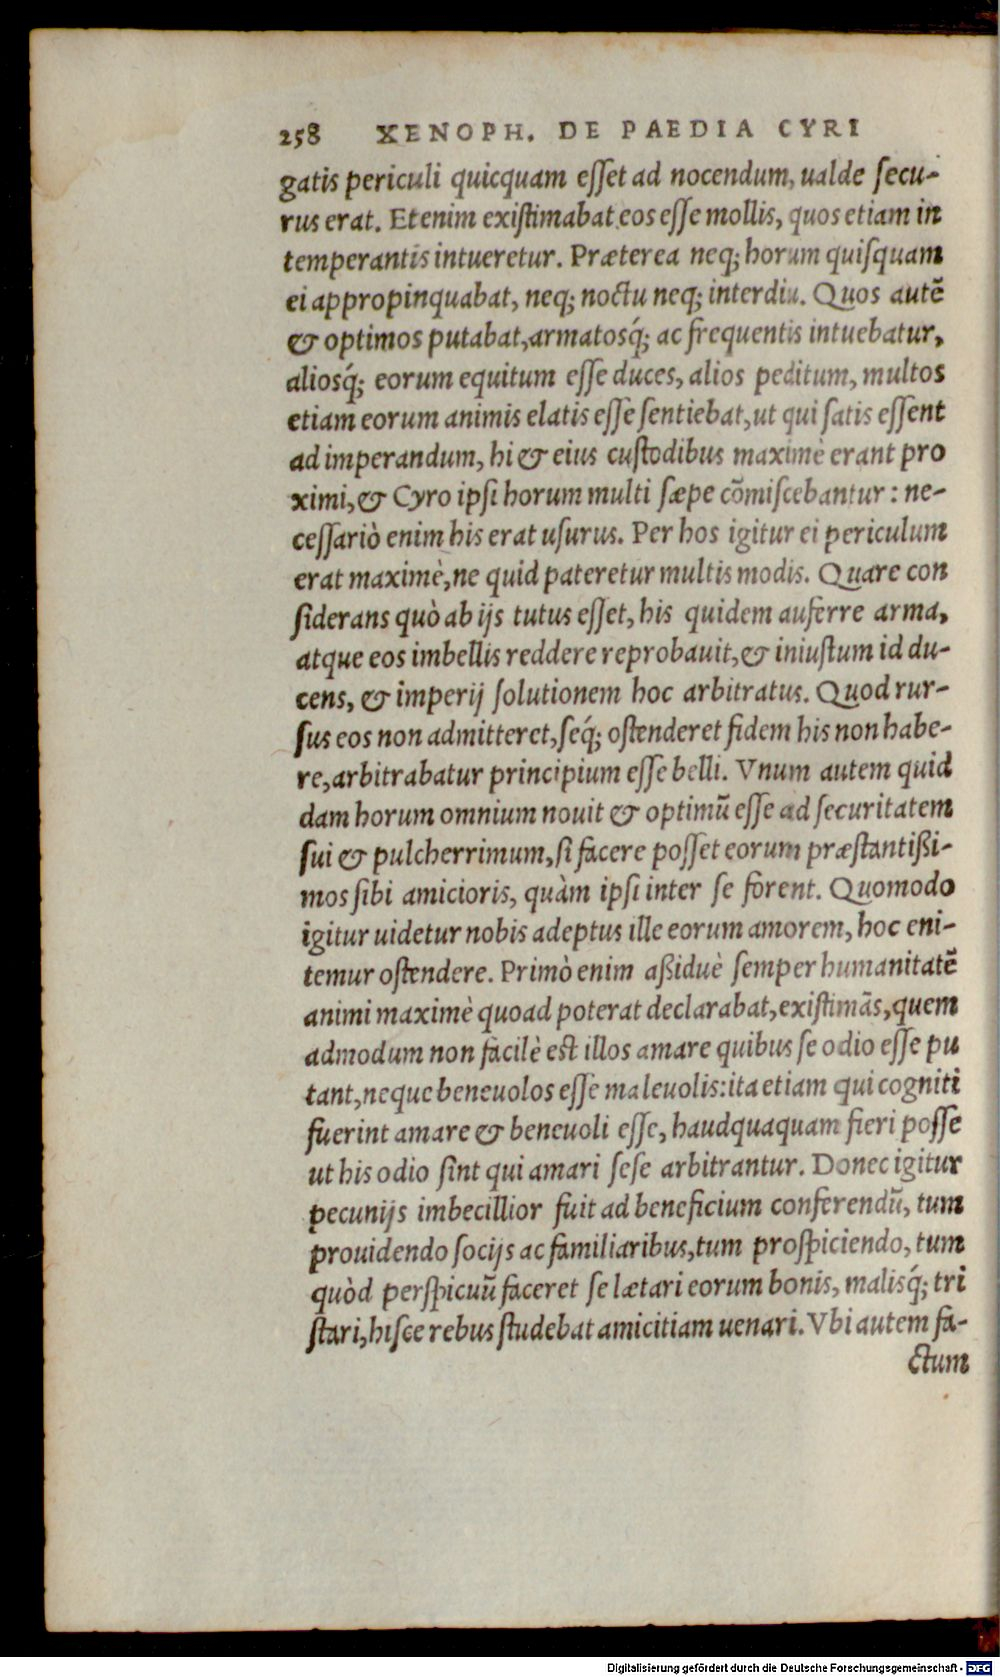 258 XENOPH. DE PAEDIA CYRI
gatis periculi quicquam esset ad nocendum, ualde secu-
rus erat. Etenim existimabat eos esse mollis, quos etiam in
temperantis intueretur. Præterea neq; horum quisquam
ei appropinquabat, neq; noctu neq; interdiu. Quos autē
& optimos putabat, armatosq́; ac frequentis intuebatur,
aliosq́; eorum equitum esse duces, alios peditum, multos
etiam eorum animis elatis esse sentiebat, ut qui satis essent
ad imperandum, hi & eius custodibus maximè erant pro
ximi, & Cyro ipsi horum multi sæpe cōmiscebantur: ne-
cessariò enim his erat usurus. Per hos igitur ei periculum
erat maximè, ne quid pateretur multis modis. Quare con
siderans quò ab ijs tutus esset, his quidem auferre arma,
atque eos imbellis reddere reprobauit, & iniustum id du-
cens, & imperij solutionem hoc arbitratus. Quod rur-
sus eos non admitteret, seq́; ostenderet fidem his non habe-
re, arbitrabatur principium esse belli. Vnum autem quid
dam horum omnium nouit & optimū esse ad securitatem
sui & pulcherrimum, si facere posset eorum præstantißi-
mos sibi amicioris, quàm ipsi inter se forent. Quomodo
igitur uidetur nobis adeptus ille eorum amorem, hoc eni-
temur ostendere. Primò enim aßiduè semper humanitatē
animi maximè quoad poterat declarabat, existimās, quem
admodum non facilè est illos amare quibus se odio esse pu
tant, neque beneuolos esse maleuolis: ita etiam qui cogniti
fuerint amare & beneuoli esse, haudquaquam fieri posse
ut his odio sint qui amari sese arbitrantur. Donec igitur
pecunijs imbecillior fuit ad beneficium conferendū, tum
prouidendo socijs ac familiaribus, tum prospiciendo, tum
quòd perspicuū faceret se lætari eorum bonis, malisq́; tri
stari, hisce rebus studebat amicitiam uenari. Vbi autem fa-
ctum
Digitalisierung gefördert durch die Deutsche Forschungsgemeinschaft - DFG